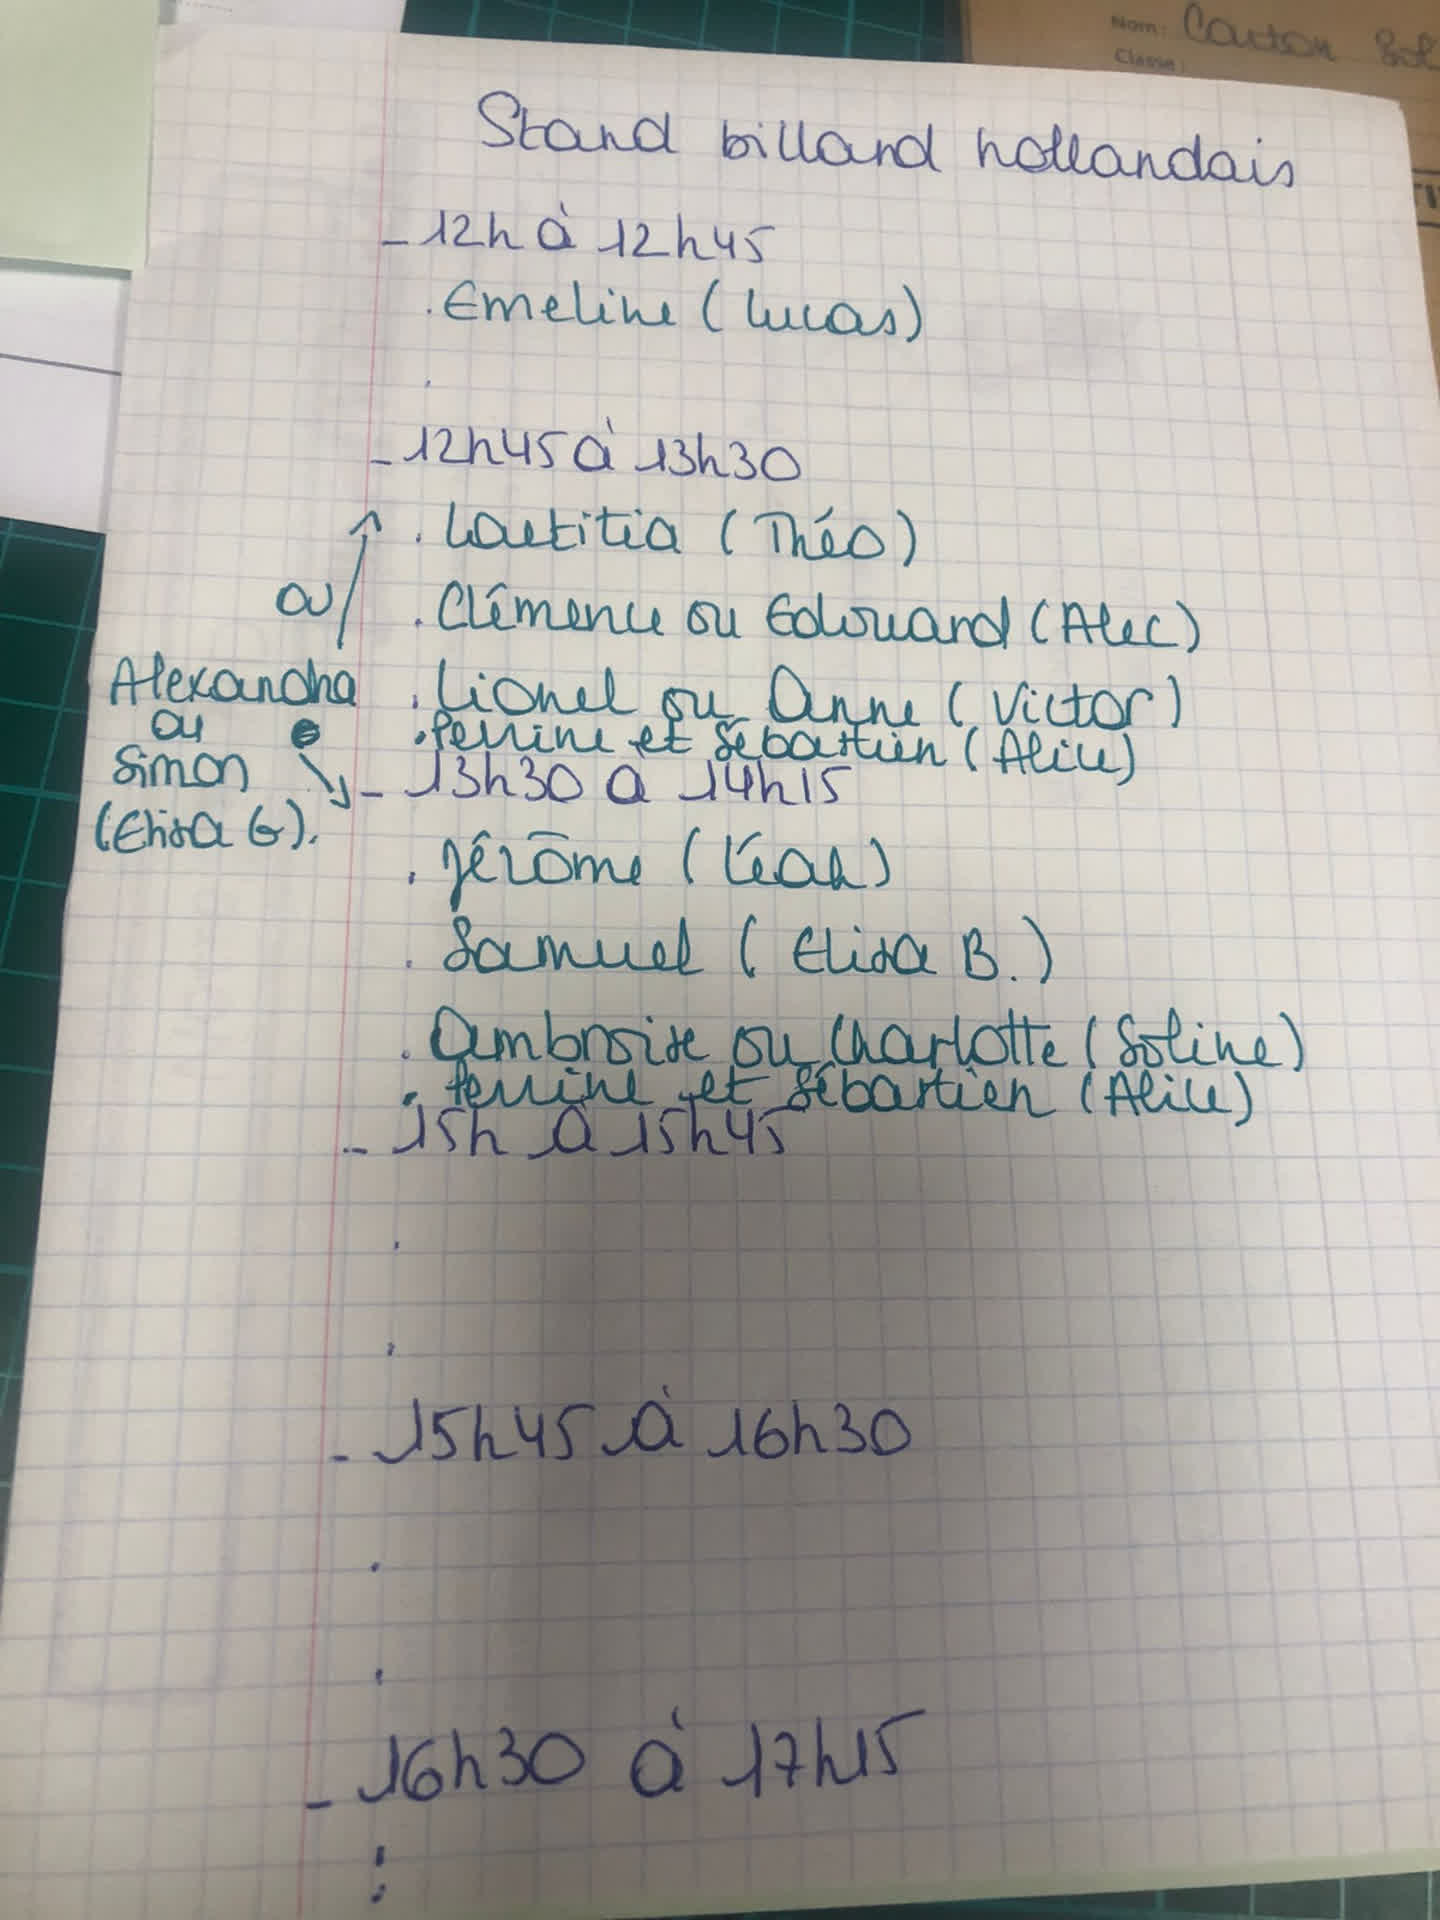 Nom: Carton
Classe:
Stand billard hollandais
- 12h à 12h45
. Emeline (Lucas)
.
- 12h45 à 13h30
. Laetitia (Théo)
. Clémence ou Edouard (Alec)
. Lionel ou Anne (Victor)
. Perrine et Sébastien (Alice)
ou
Alexandra
ou
Simon
(Elisa G).
- 13h30 à 14h15
. Jérôme (Léah)
. Samuel (Elisa B.)
. Ambroise ou Charlotte (Soline)
. Perrine et Sébastien (Alice)
- 15h à 15h45
.
.
- 15h45 à 16h30
.
.
- 16h30 à 17h15
.
.